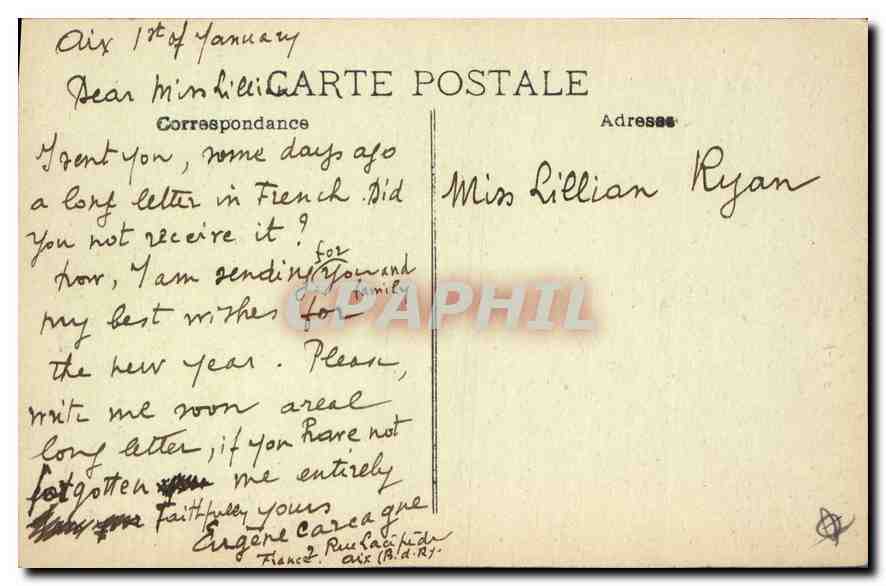 Aix 1st of January
Dear Miss Lillian
CARTE POSTALE
Correspondance
I sent you, some days ago
a long letter in French. Did
you not receive it?
now, I am sending for you and
family
my best wishes for
the new year. Please,
write me soon a real
long letter, if you have not
forgotten me entirely
Faithfully yours
Eugène Carcagne
2 Rue Lacépède
France. Aix (B.d.R).
Adresse
Miss Lillian Ryan
CPAPHIL